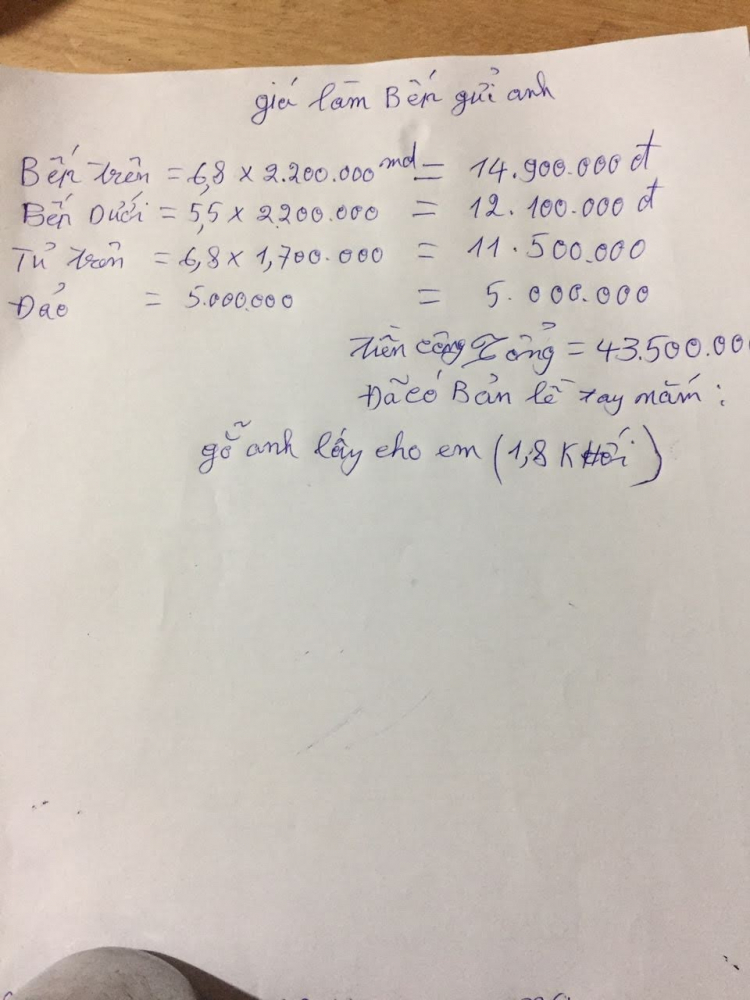 giá làm Bếp gửi anh
Bếp trên = 6,8 x 2.200.000 md = 14.900.000 đ
Bếp Dưới = 5,5 x 2200.000 = 12.100.000 đ
Tủ trên = 6,8 x 1,700.000 = 11.500.000
Đảo = 5.000.000 = 5.000.000
tiền công Tổng = 43.500.00
Đã có Bản lề tay nắm :
gỗ anh lấy cho em (1,8 Khối)